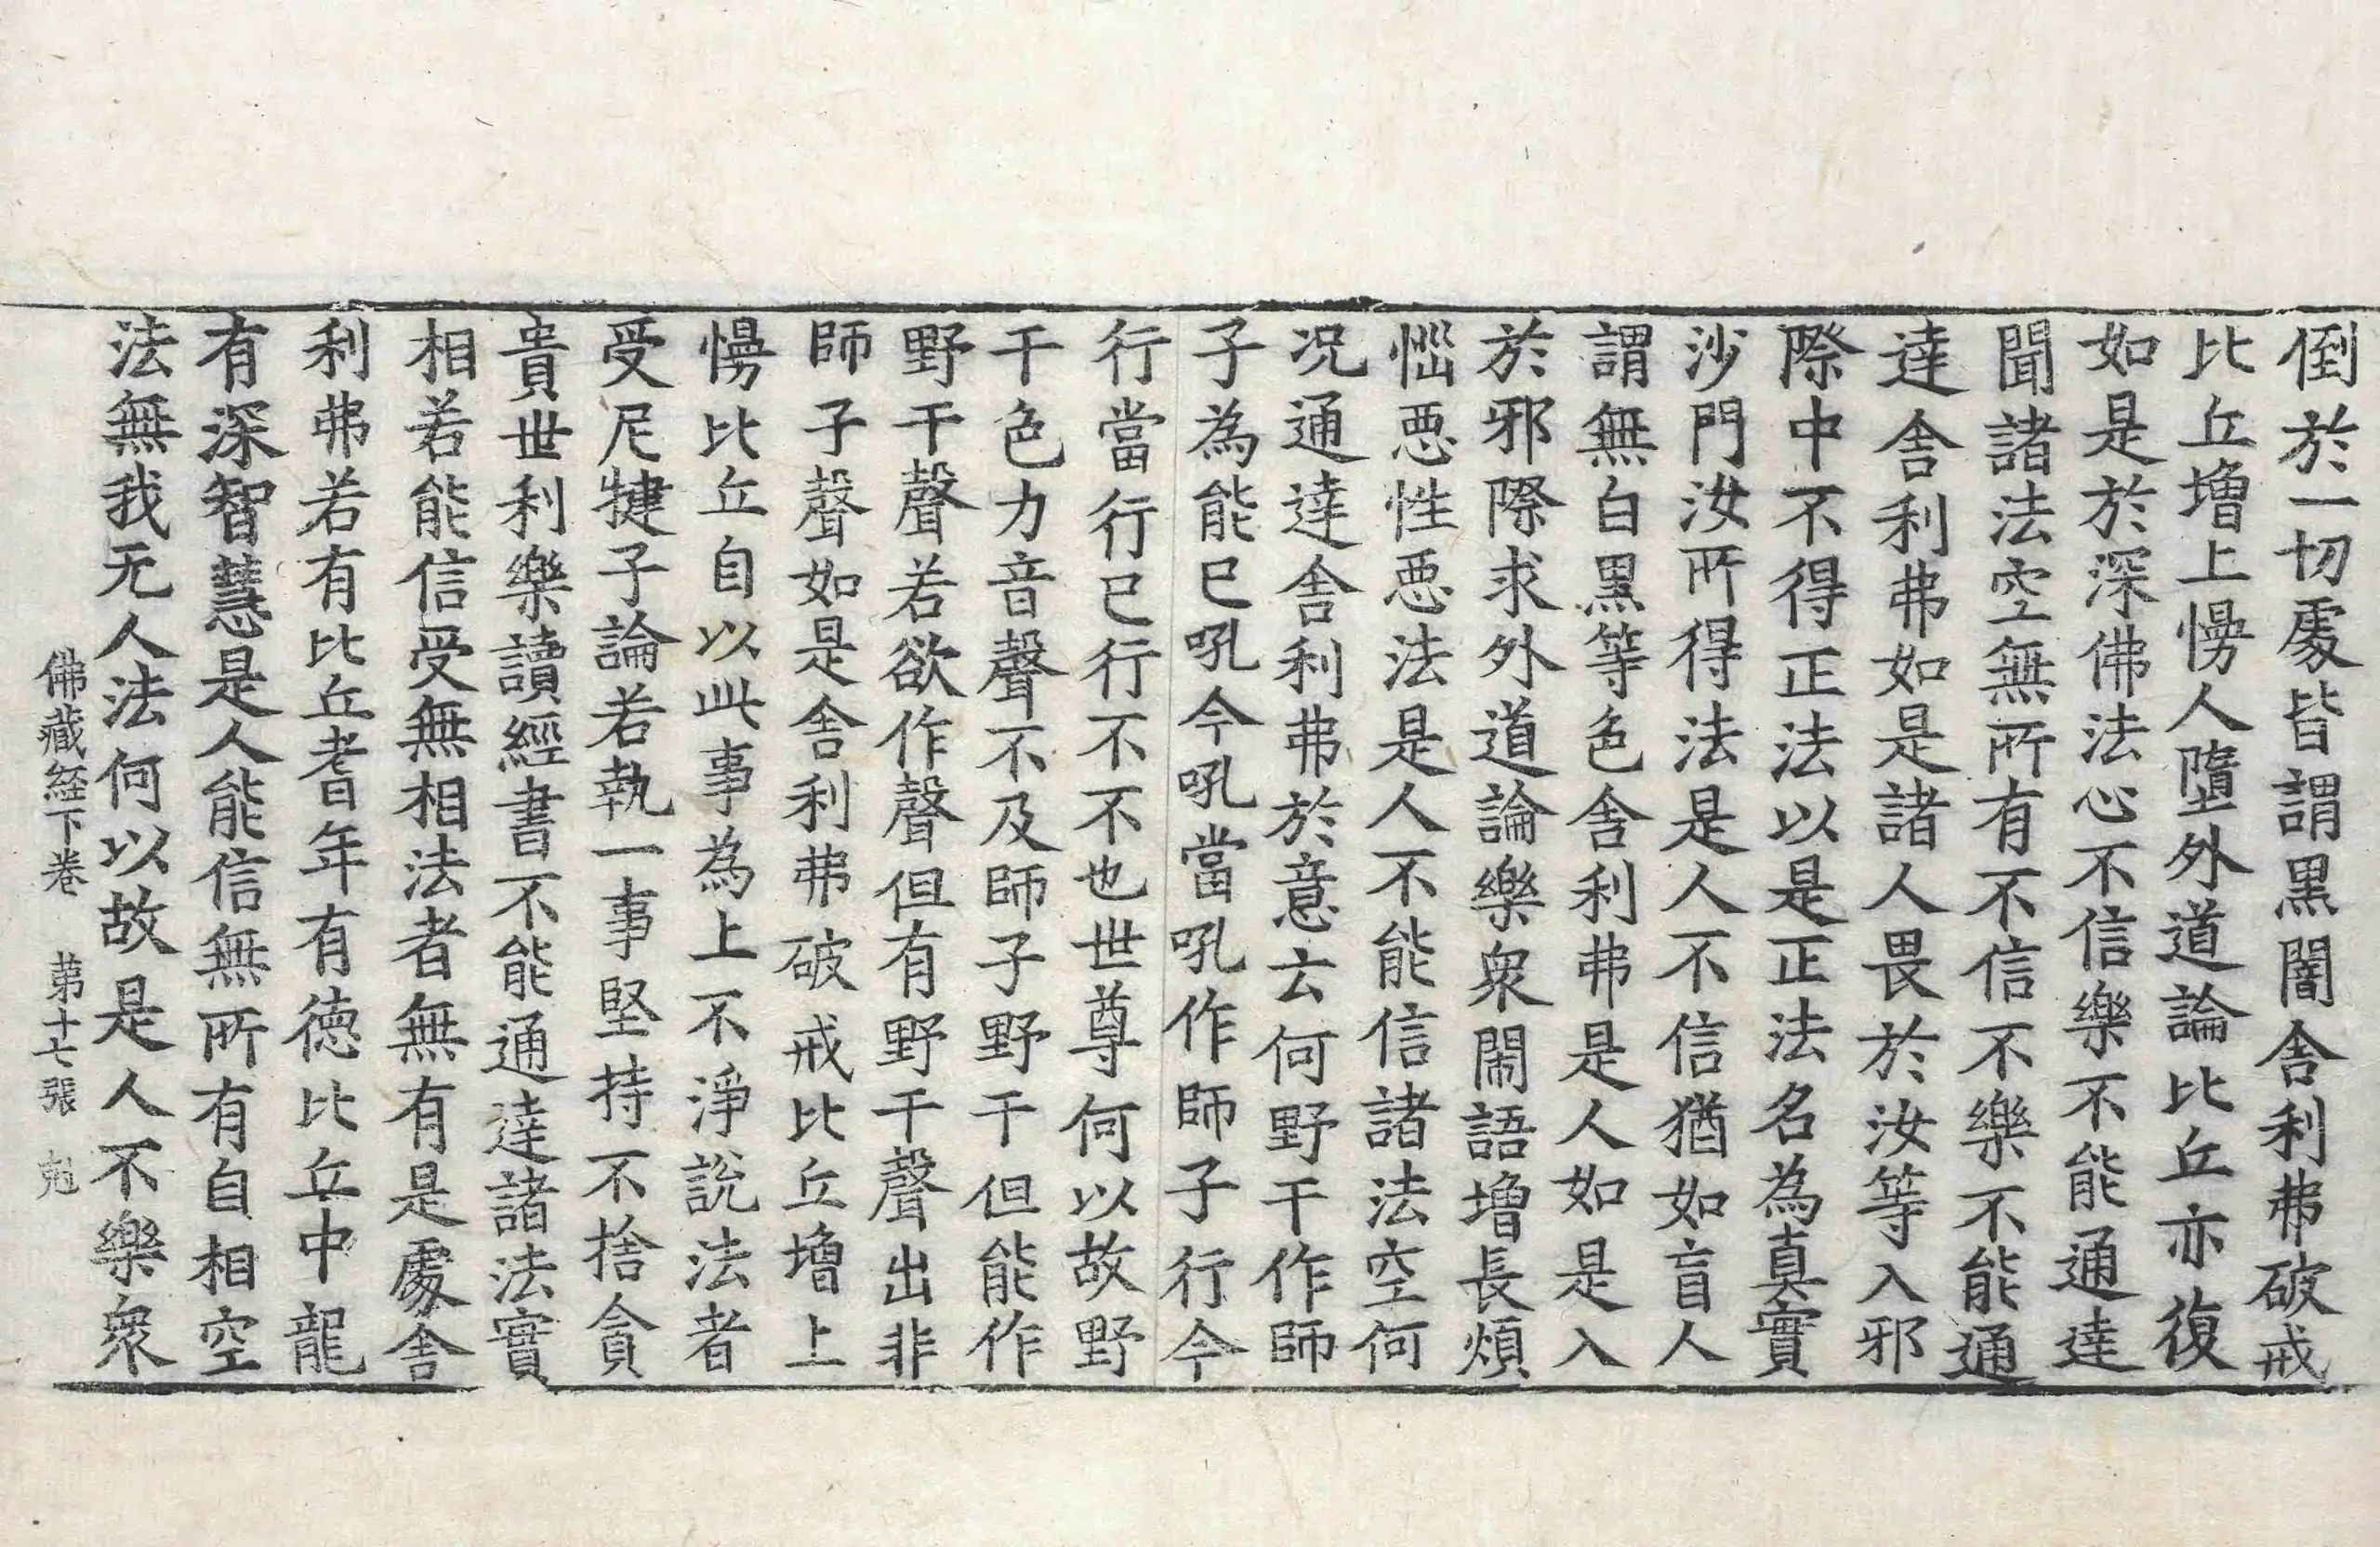 倒於一切䖏皆謂黒闇舎利弗破戒
比丘増上慢人墮外道論比丘亦復
如是於深佛法心不信樂不能通達
聞諸法空無所有不信不樂不能通
達舎利弗如是諸人畏於汝等入邪
際中不得正法以是正法名為真實
沙門汝所得法是人不信猶如盲人
謂無白黒等色舎利弗是人如是入
於邪際求外道論樂衆閙語増長煩
惱惡性惡法是人不能信諸法空何
况通達舎利弗於意云何野干作師
子為能已吼今吼當吼作師子行今
行當行已行不不也世尊何以故野
干色力音聲不及師子野干但能作
野干聲若欲作聲但有野干聲出非
師子聲如是舎利弗破戒比丘増上
慢比丘自以此事為上不淨說法者
受尼揵子論若執一事堅持不捨貪
貴世利樂讀經書不能通達諸法實
相若能信受無相法者無有是䖏舎
利弗若有比丘耆年有德比丘中龍
有深智慧是人能信無所有自相空
法無我无人法何以故是人不樂衆
佛藏経下卷 第十七張